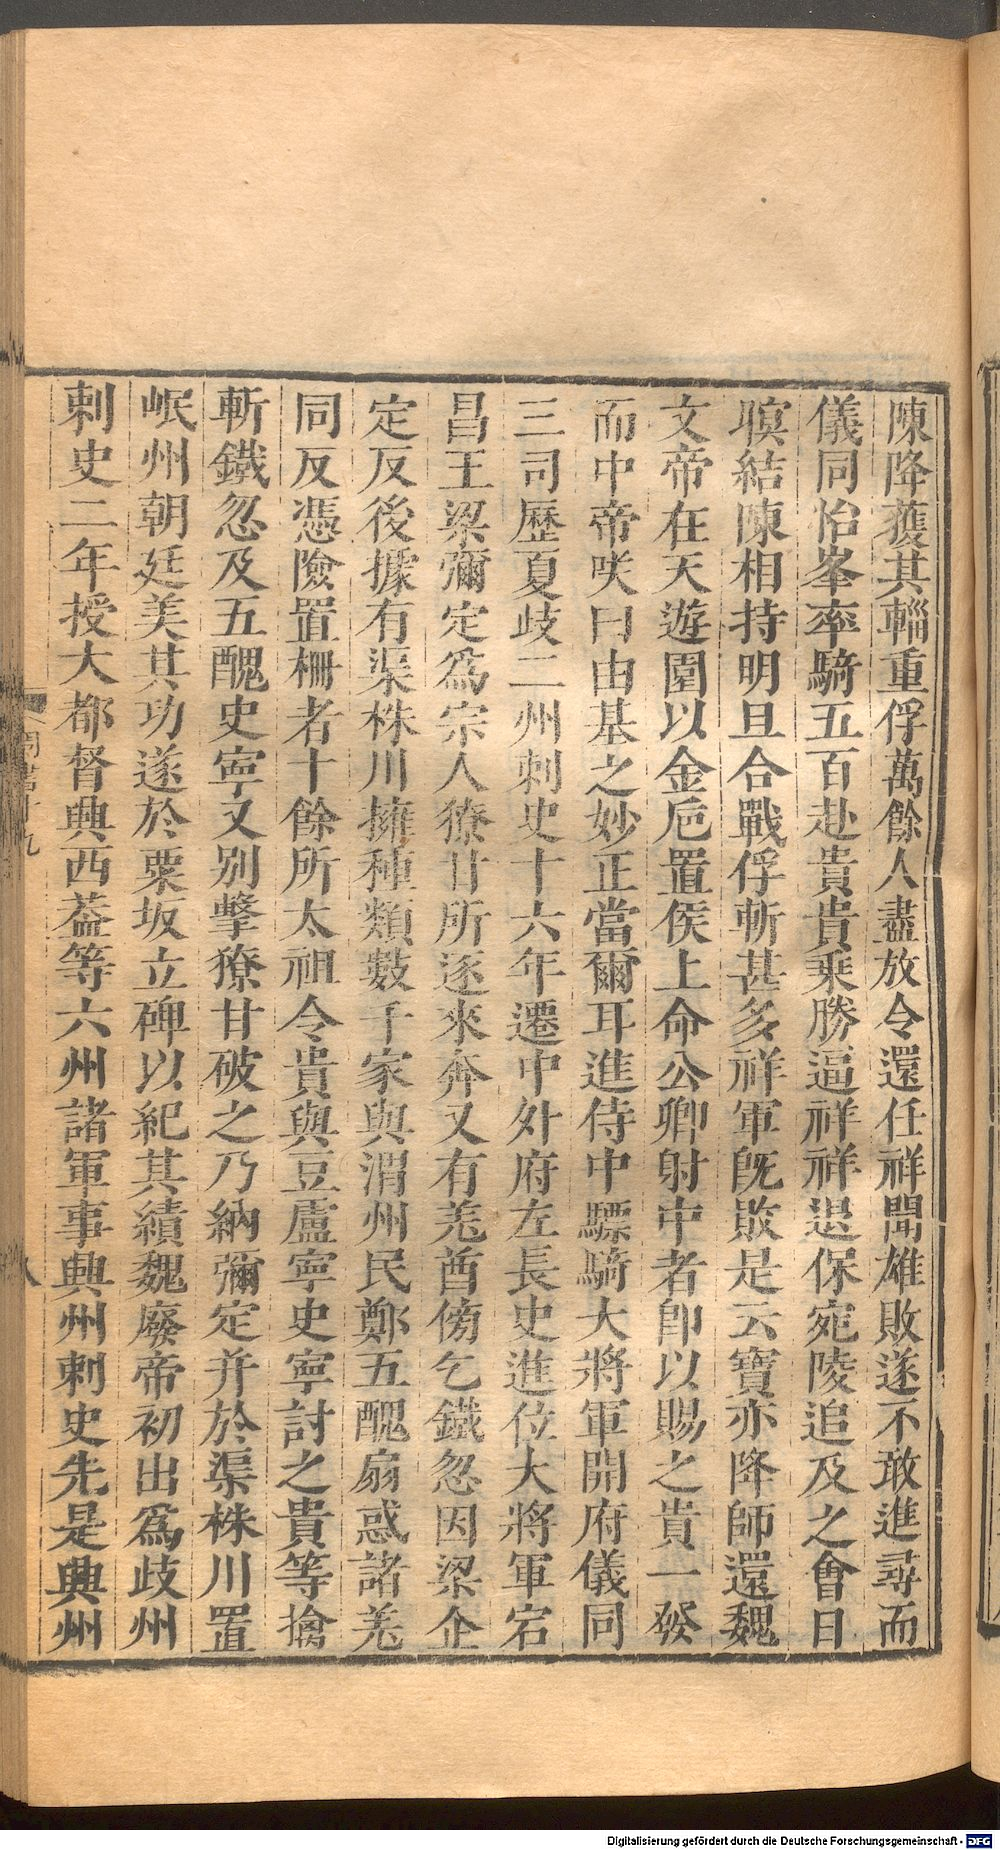 陳降獲其輜重俘萬餘人盡放令還任祥聞雄敗遂不敢進尋而
儀同怡峯率騎五百赴貴貴乗勝逼祥祥退保宛陵追及之會日
暝結陳相持明旦合戰俘斬甚多祥軍旣敗是云寶亦降師還魏
文帝在天遊園以金巵置侯上命公卿射中者卽以賜之貴一發
而中帝咲曰由基之妙正當爾耳進侍中驃騎大將軍開府儀同
三司歷夏歧二州刺史十六年遷中外府左長史進位大將軍宕
昌王梁彌定爲宗人獠甘所逐來奔又有羌酋傍乞鐵忽因梁企
定反後據有渠株川擁種類數千家與渭州民鄭五醜扇惑諸羌
同反憑險置柵者十餘所太祖令貴與豆盧寧史寧討之貴等擒
斬鐵忽及五醜史寧又别擊獠甘破之乃納彌定并於渠株川置
岷州朝廷美其功遂於粟坂立碑以紀其績魏廢帝初出爲歧州
刺史二年授大都督興西葢等六州諸軍事興州刺史先是興州
周書十九
八
Digitalisierung gefördert durch die Deutsche Forschungsgemeinschaft - DFG